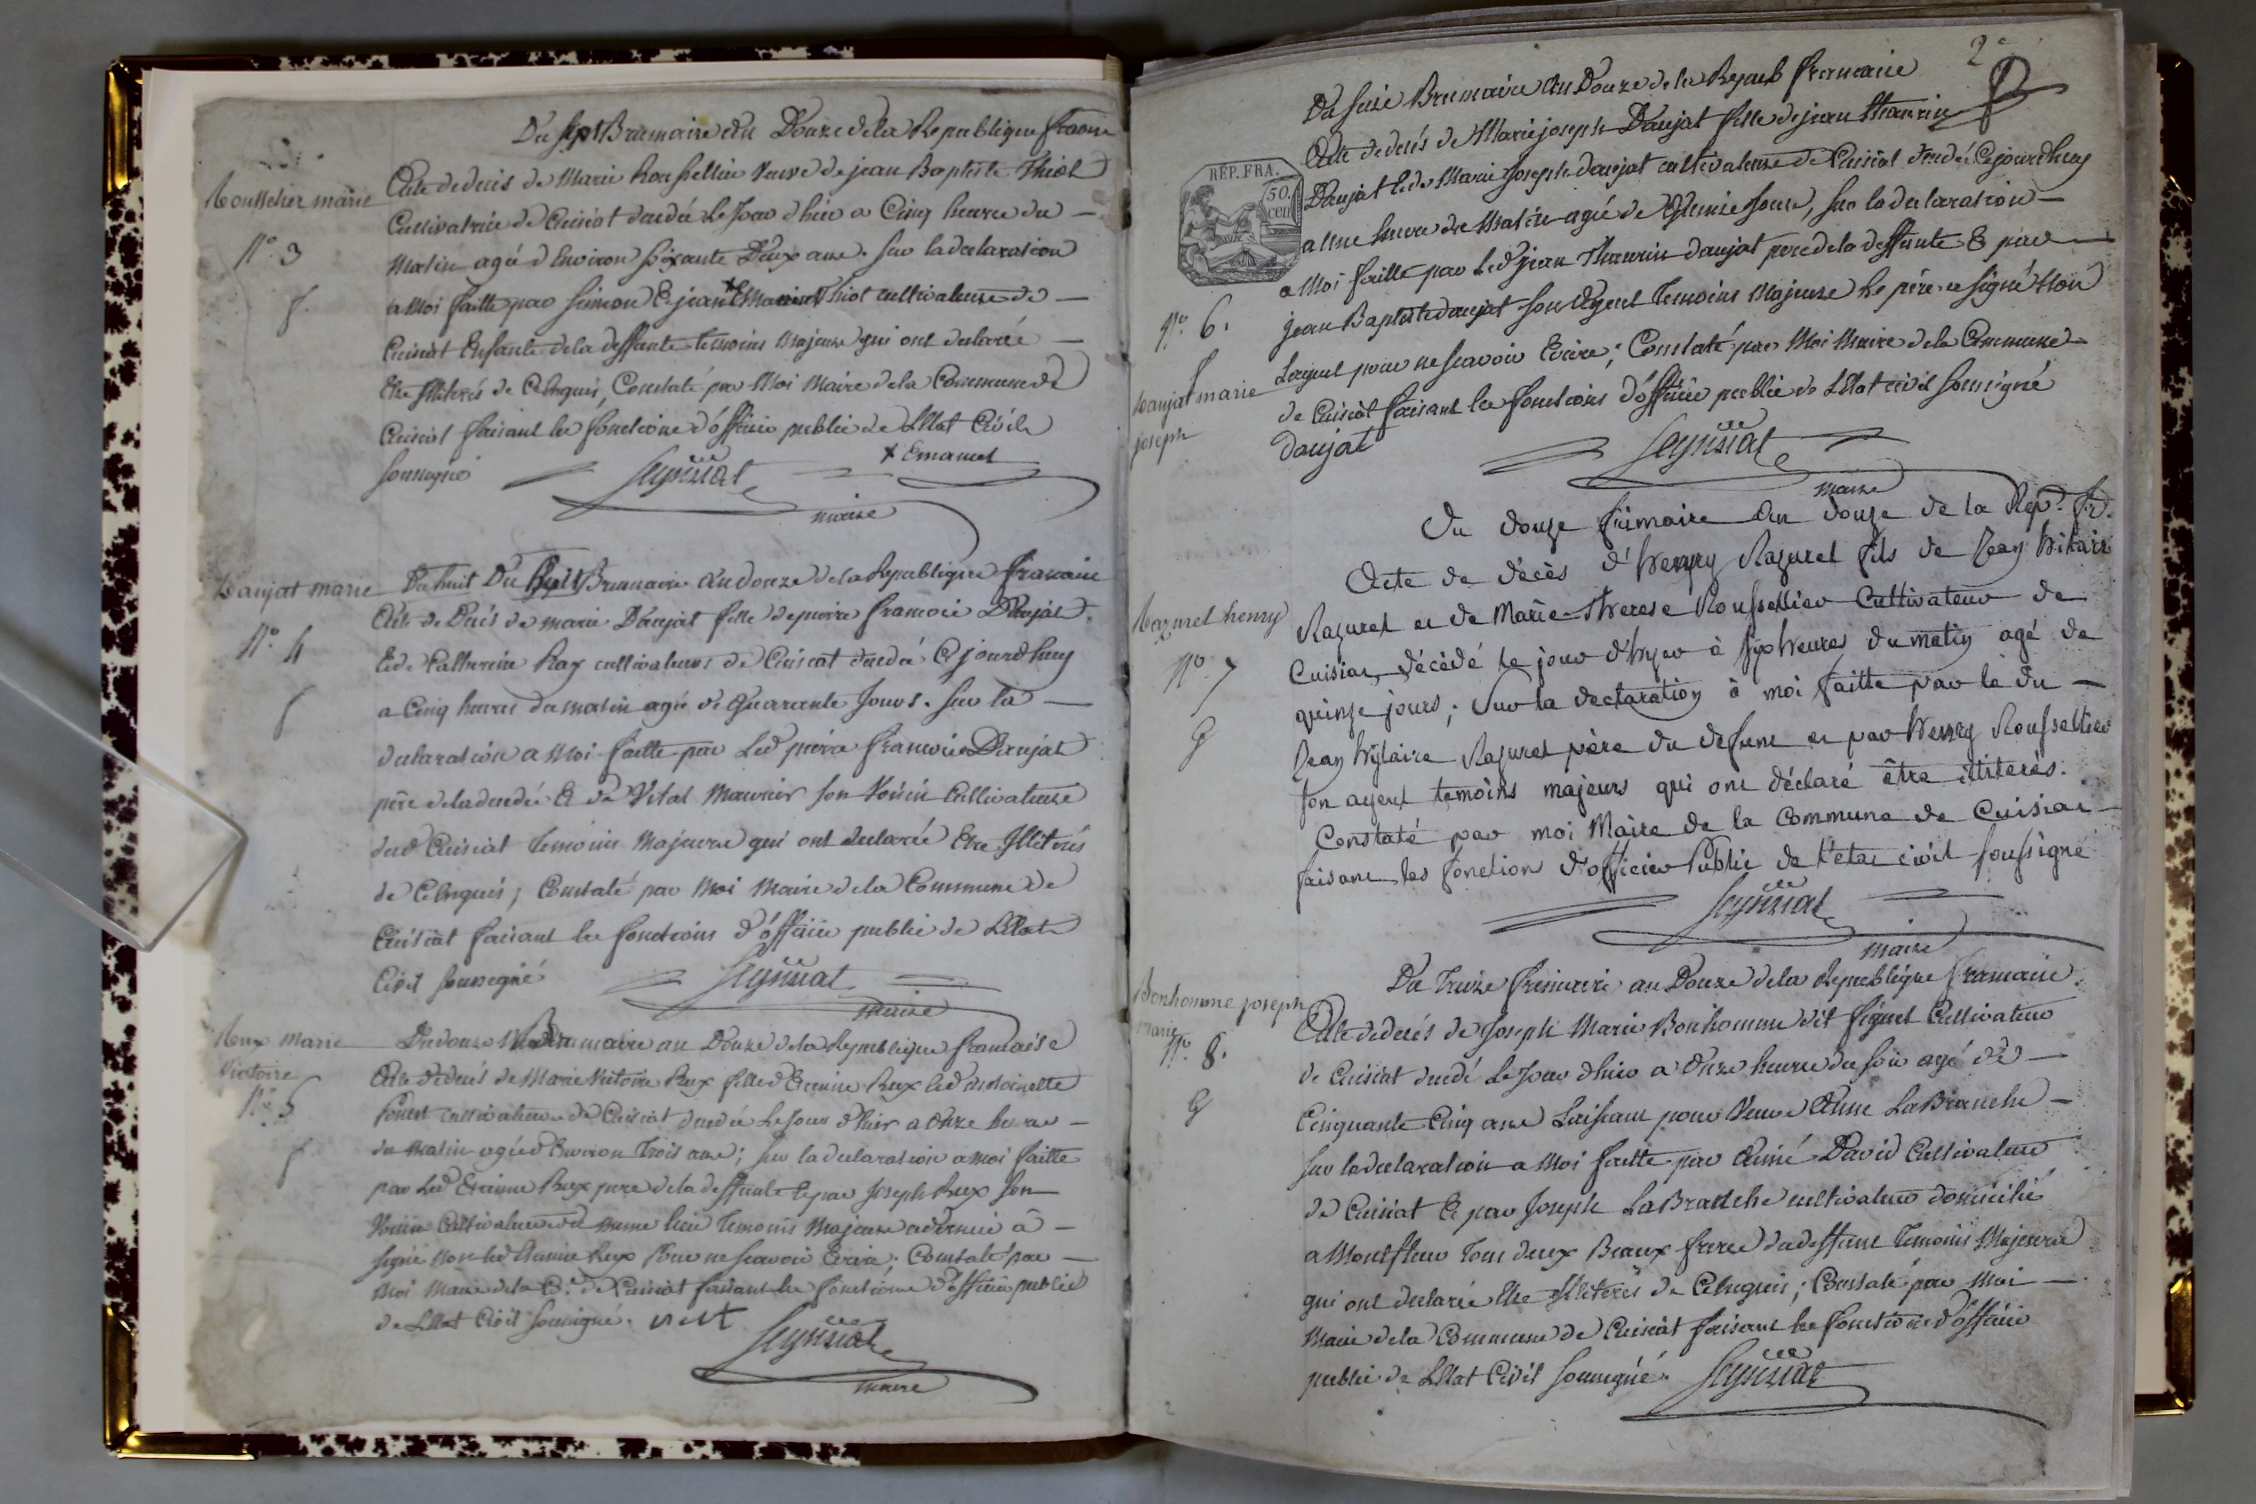 Du sept Brumaire an Douze de la Republique francse
Rousselier marie
Acte de deces de Marie Rousellier Veuve de jean Baptiste Thiot
Cultivatrice de Cuisiat decedée Le Jour d'hier a Cinq heures du
N.o 3
Matin agée d'Environ soixante Deux ans. Sur la declaration
a Moi faitte par Simon & jean + Thiot cultivateurs de
Cuisiat Enfants de la deffunte temoins Majeurs qui ont declaré
Etre Illiterés de Ce Enquis, Constaté par Moi Maire de la Commune de
Cuisiat faisant les fonctions d'officier public de L'Etat Civil
soussigné
Seyssiat
+ Emanuel
maire
Daujat marie
Du huit Du Brumaire an douze de la Republique francaise
Acte de Decés de marie Daujat fille de pierre francois Daujat
N.o 4
& de Catherine Ray cultivateurs de Cuisiat decedée Cejourdhuy
a Cinq heures du matin agée de Quarante Jours. Sur la
declaration a Moi faitte par Led pierre francois Daujat
pere de la decedée & de Vital Maurier son Voisin Cultivateurs
dud Cuisiat Temoins Majeurs qui ont declaré Etre Illiterés
de Ce Enquis; Constaté par Moi Maire de la Commune de
Cuisiat faisant les fonctions d'officier public de L'Etat
Civil soussigné
Seyssiat
maire
Reux Marie
Victoire
N.o 5
Du douze Brumaire an Douze de la Republique francaise
Acte de decés de Marie Victoire Rux fille d'Etienne Rux & de
cultivateurs de Cuisiat decedée Le Jour d'hier a Onze heures
du Matin agée d'Environ Trois ans; sur la declaration a moi faitte
par Led Etienne Rux pere de la deffunte & par Joseph Rux son
Voisin Cultivateur du meme lieu Temoins Majeurs
signé Non led Etienne Rux Pour ne scavoir Ecrire; Constaté par
Moi Maire de la C.e de Cuisiat faisant les fonctions d'officier public
de L'Etat Civil soussigné.
Seyssiat
maire
2e
Du seise Brumaire An Douze de la Repub francaise
Acte de decés de Marie joseph Daujat fille de jean Thaurin
RÉP. FRA.
50.
cen
Daujat & de Marie Joseph daujat cultivateurs de Cuisiat decedée Cejourdhuy
a Une heure de Matin agée de Quinse Jours, sur la declaration
a Moi faitte par Led jean Thaurin daujat pere de la deffunte & par
N.o 6.
jean Baptiste daujat son Ayeul temoins Majeurs le père a signé Non
Layeul pour ne scavoir Ecrire; Constaté par Moi Maire de la Commune
Daujat marie
joseph
de Cuisiat faisant les fonctions d'officier public de L'Etat civil soussigné
daujat
Seyssiat
maire
Du douze frimaire An douze de la Rep. fr.
Acte de décès d'henry Razurel fils de Jean hilaire
Razurel henry
Razurel et de Marie therese Roussellier Cultivateur de
Cuisiat, décédé le jour d'hyer à six heures du matin agé de
N.o 7
quinze jours; Sur la declaration à moi faitte par le du
Jean hylaire Razurel père du defunt et par henry Roussellier
son ayeul temoins majeurs qui ont déclaré être illiterés.
Constaté par moi Maire de la Commune de Cuisiat
faisant les fonction d'officier Public de l'etat civil soussigné
Seyssiat
maire
Du Treize frimaire an Douze de la Republique francaise.
Bonhomme joseph
marie
N.o 8.
Acte de decés de Joseph Marie Bonhomme dit figuet Cultivateur
de Cuisiat decedé Le Jour d'hier a Onze heures du soir agé de
Cinquante Cinq ans Laissant pour Veuve Anne LaBranche
sur la declaration a Moi faitte par Aimé David Cultivateur
de Cuisiat & par Joseph LaBranche cultivateur domicilié
a Montfleur tous deux Beaux freres du deffunt temoins Majeurs
qui ont declaré Etre Illiterés de Ce Enquis; Constaté par Moi
Maire de la Commune de Cuisiat faisant les fonctions d'officier
public de L'Etat Civil soussigné.
Seyssiat